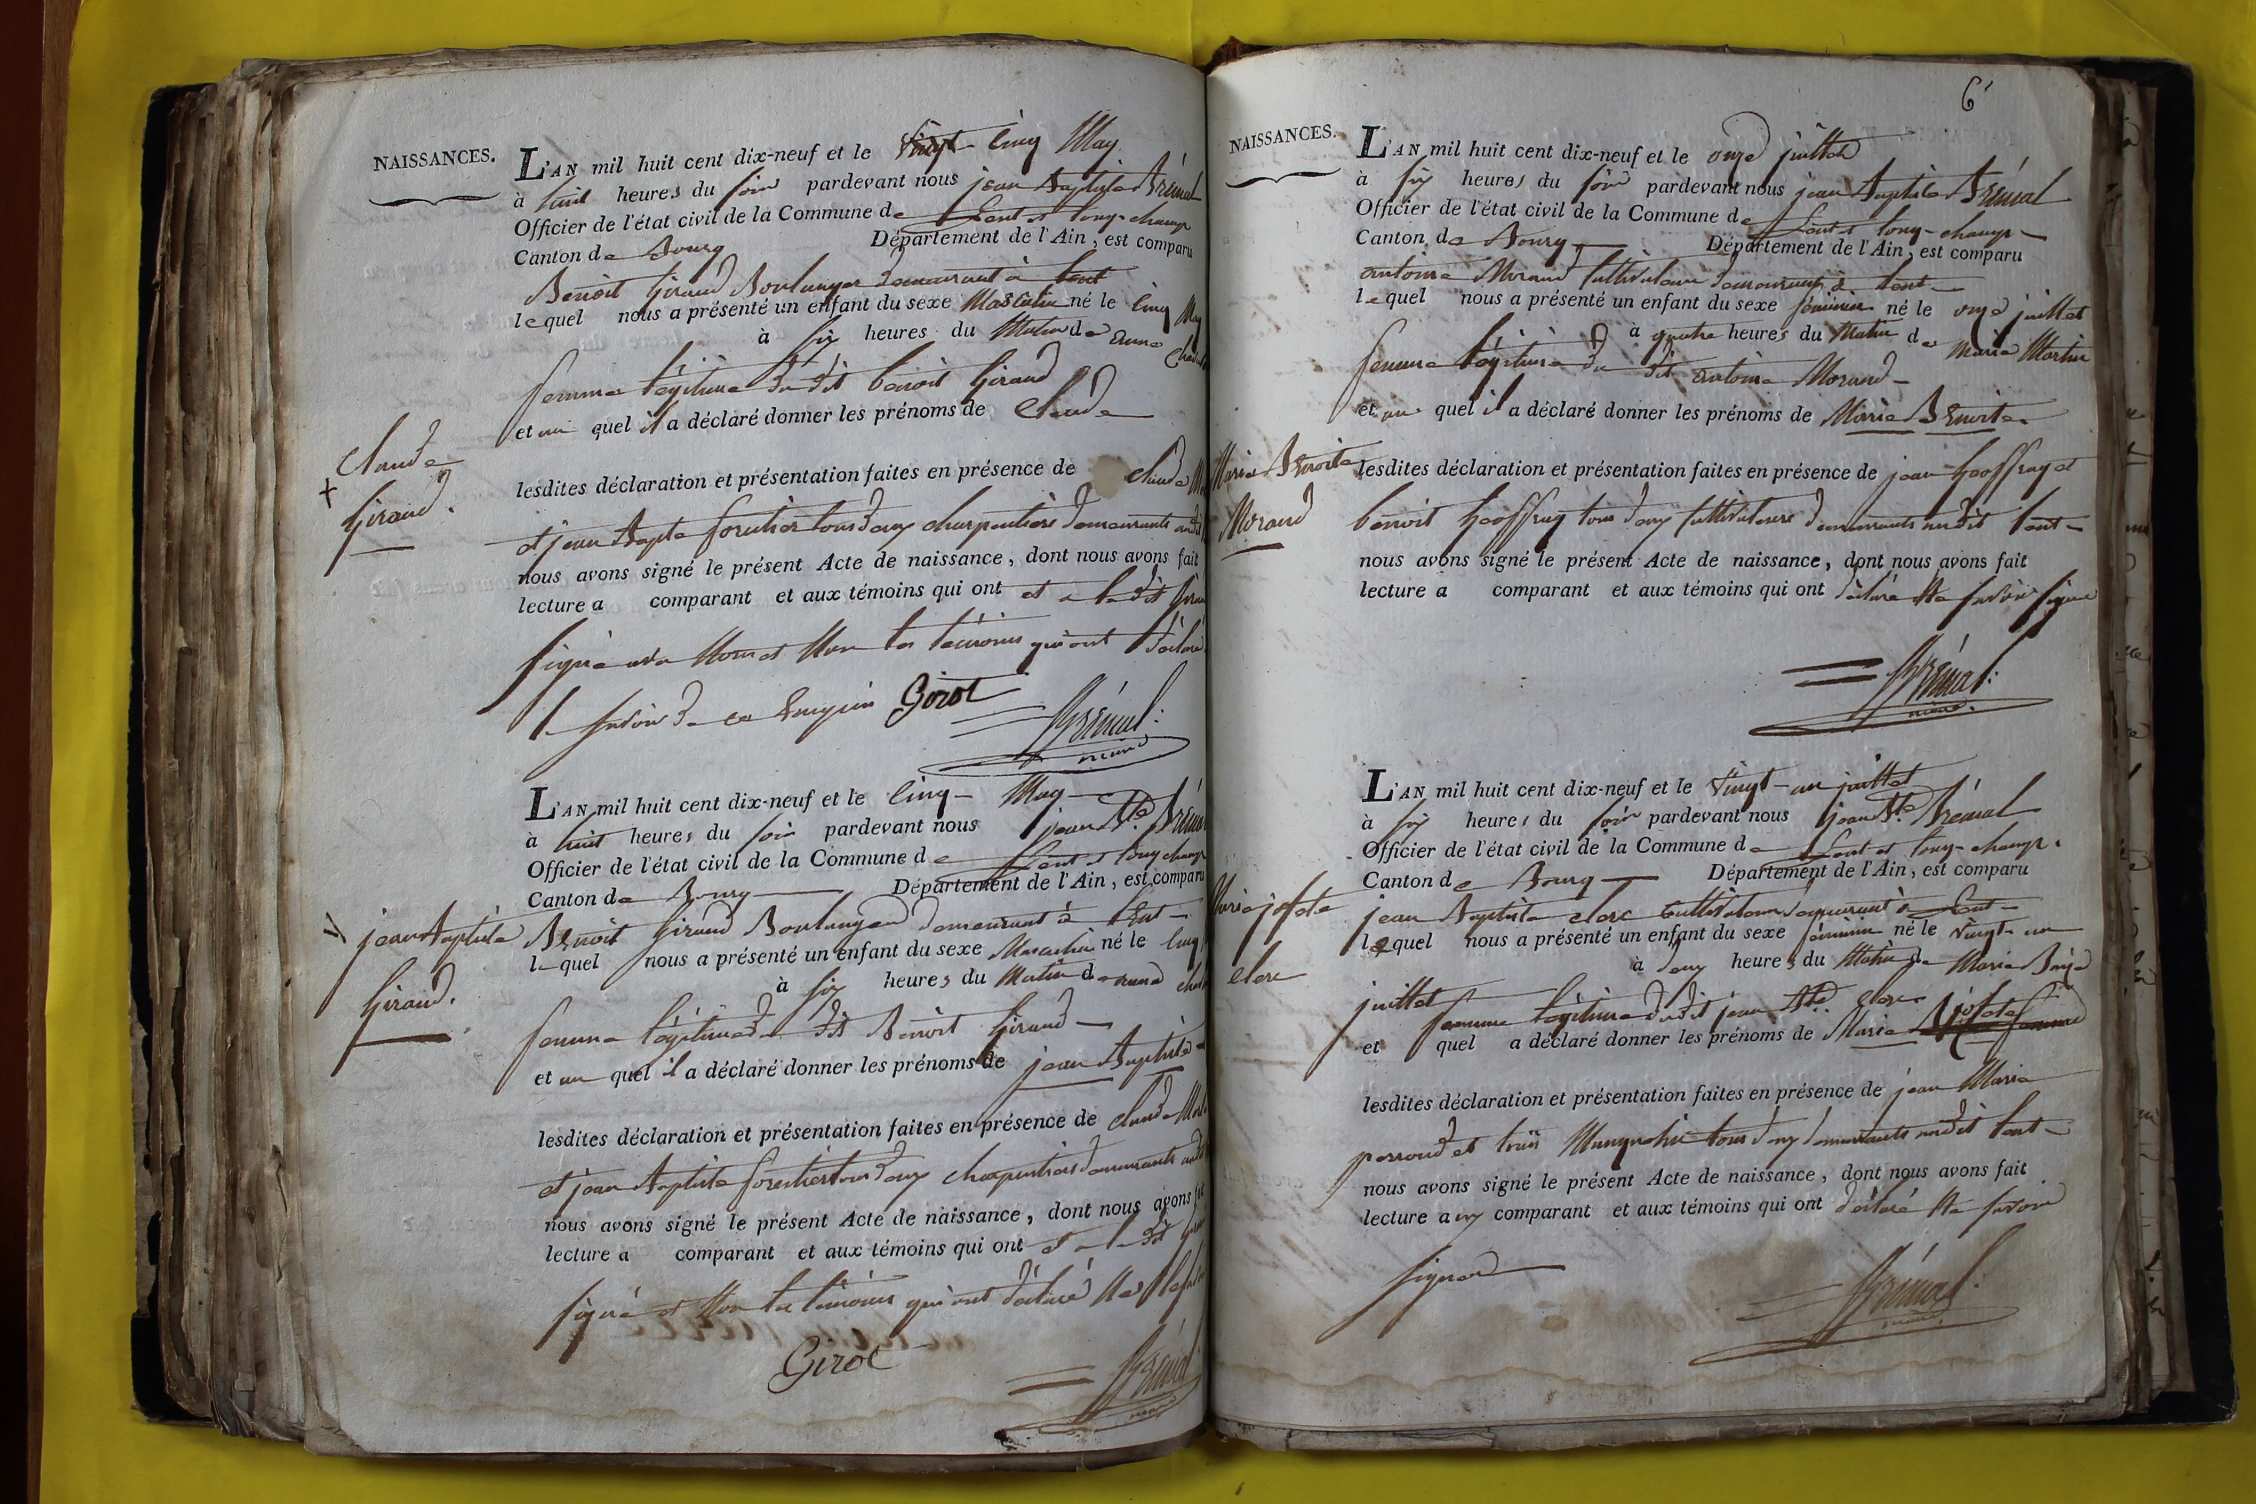 NAISSANCES.
L'AN mil huit cent dix-neuf et le Vingt cinq May
à huit heures du soir pardevant nous jean Baptiste Brémal
Officier de l'état civil de la Commune de Lent et longchamp
Canton de Bourg Département de l'Ain, est comparu
Benoit Giraud Boulanger demeurant à Lent
lequel nous a présenté un enfant du sexe Masculin né le cinq May
à six heures du Matin de
femme légitime du dit benoit Giraud
et au quel il a déclaré donner les prénoms de Claude
Claude
Giraud.
lesdites déclaration et présentation faites en présence de Claude
et jean Bapte forestier tous deux charpentiers demeurants audit
nous avons signé le présent Acte de naissance, dont nous avons fait
lecture a comparant et aux témoins qui ont et a le dit
signé avec Nous et Non les témoins qui ont déclaré
savoir de ce Enquis Girot
Brémal.
maire
L'AN mil huit cent dix-neuf et le cinq May
à huit heures du soir pardevant nous jean Bte. Brémal
Officier de l'état civil de la Commune de Lent et longchamp
Canton de Bourg Département de l'Ain, est comparu
jean Baptiste
Giraud.
Benoit Giraud Boulanger demeurant à Lent
lequel nous a présenté un enfant du sexe Masculin né le cinq
à six heures du Matin de
femme légitime du dit Benoit Giraud
et au quel il a déclaré donner les prénoms de jean Baptiste
lesdites déclaration et présentation faites en présence de claude
et jean Baptiste forestier tous deux charpentiers demeurants audit
nous avons signé le présent Acte de naissance, dont nous avons fait
lecture a comparant et aux témoins qui ont et a le dit
signé et Non les témoins qui ont déclaré Ne
Girot
Brémal
maire
6
NAISSANCES.
L'AN mil huit cent dix-neuf et le onze juillet
à six heures du soir pardevant nous jean Baptiste Brémal
Officier de l'état civil de la Commune de Lent et long-champ
Canton de Bourg Département de l'Ain, est comparu
antoine Morand Cultivateur demeurant à Lent
lequel nous a présenté un enfant du sexe féminin né le onze juillet
à quatre heures du Matin de Marie Martin
femme légitime du dit antoine Morand
et au quel il a déclaré donner les prénoms de Marie Benoite
Marie Benoite
Morand
lesdites déclaration et présentation faites en présence de jean Geoffray et
benoit Geoffray tous deux Cultivateurs demeurants audit Lent
nous avons signé le présent Acte de naissance, dont nous avons fait
lecture a comparant et aux témoins qui ont déclaré Ne savoir signer
Brémal.
maire.
L'AN mil huit cent dix-neuf et le Vingt-un juillet
à six heures du soir pardevant nous jean Bte Brémal
Officier de l'état civil de la Commune de Lent et long-champ.
Canton de Bourg Département de l'Ain, est comparu
Marie josote
clerc
jean Baptiste clerc Cultivateur demeurant à Lent
lequel nous a présenté un enfant du sexe féminin né le Vingt un
juillet à deux heures du Matin de Marie
femme légitime du dit jean Bte. clerc
et quel a déclaré donner les prénoms de Marie
lesdites déclaration et présentation faites en présence de jean Marie
perroud et louis tous deux demeurants audit Lent
nous avons signé le présent Acte de naissance, dont nous avons fait
lecture aux comparant et aux témoins qui ont déclaré Ne savoir
signer
Brémal.
maire.